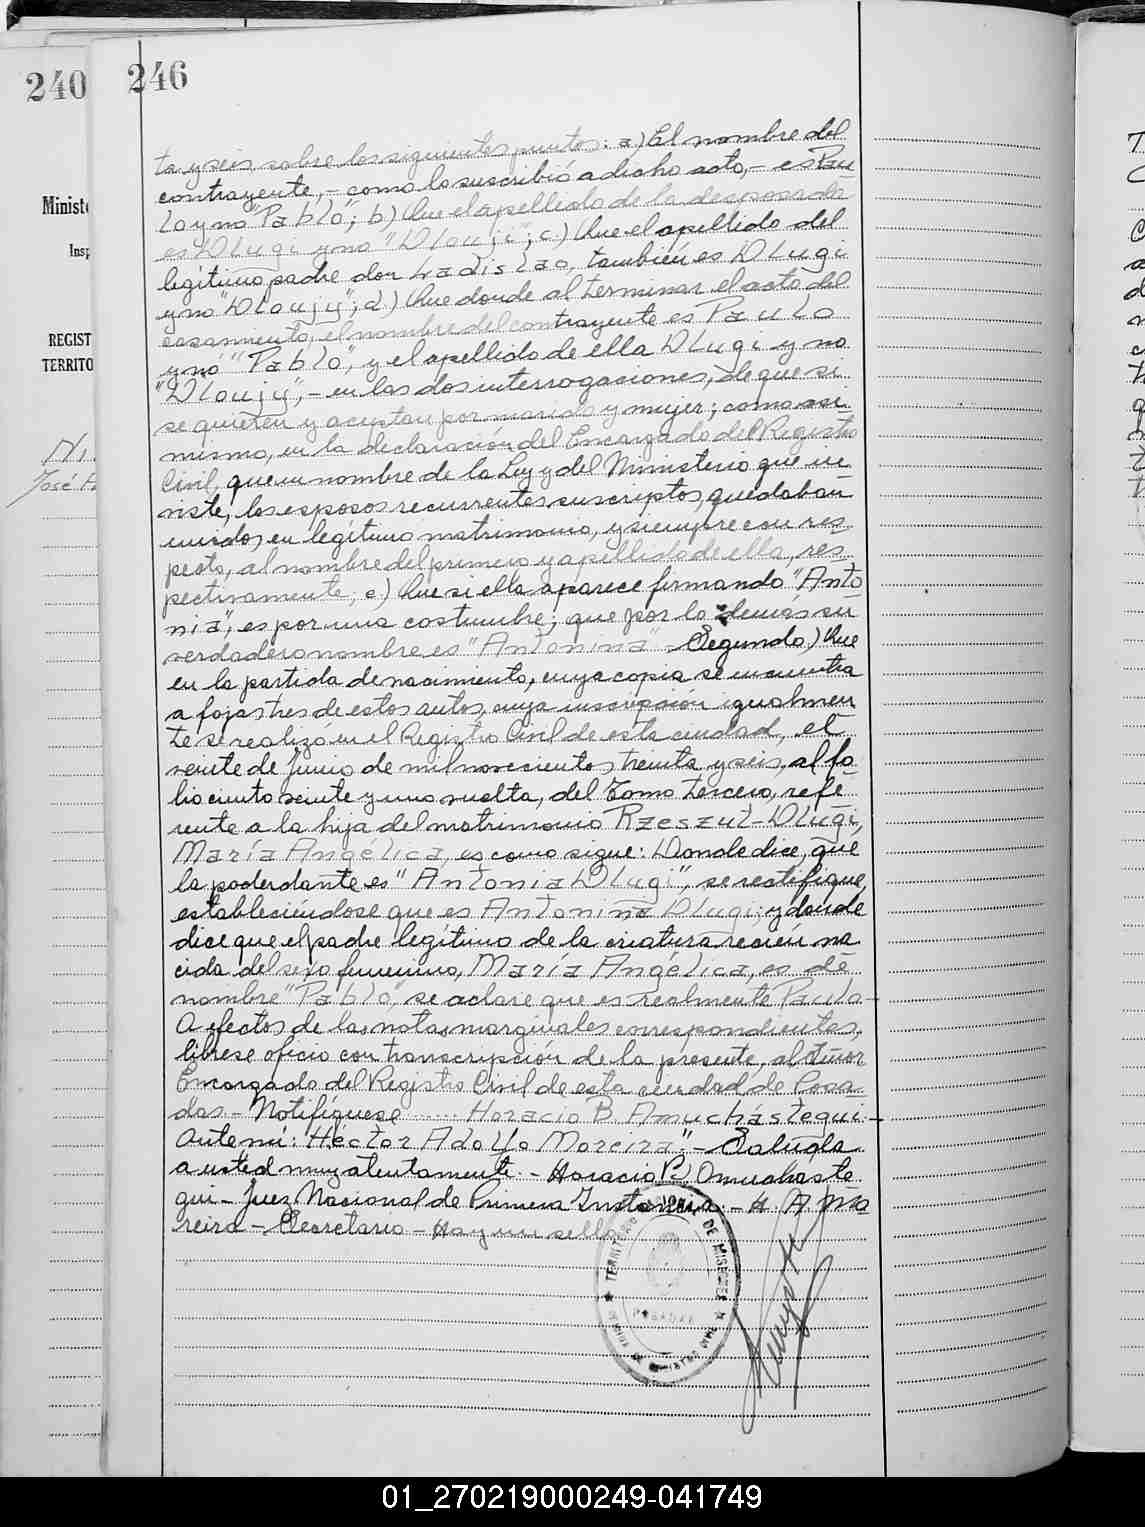 240
246
Ministe
Insp
REGIST
TERRITO
José
ta y seis sobre los siguientes puntos: a) El nombre del
contrayente, - como lo suscribió a dicho acto, - es Pau
lo y no "Pablo"; b) Que el apellido de la desposada
es Dlugi y no "Dlouji"; c.) Que el apellido del
legítimo padre don Ladislao, también es Dlugi
y no "Dloujy"; d.) Que donde al terminar el acto del
casamiento, el nombre del contrayente es Paulo
y no "Pablo", y el apellido de ella Dlugi y no
"Dloujy", - en las dos interrogaciones, de que si
se quieren y aceptan por marido y mujer; como asi
mismo, en la declaración del Encargado del Registro
Civil, que en nombre de la Ley y del Ministerio que in
viste, los esposos recurrentes suscriptos, quedaban
unidos en legítimo matrimonio, y siempre con res
pecto, al nombre del primero y apellido de ella, res
pectivamente; e) Que si ella aparece firmando "Anto
nia", es por una costumbre; que por lo demás su
verdadero nombre es "Antonina" - Segundo) Que
en la partida de nacimiento, cuya copia se encuentra
a fojas tres de estos autos, cuya inscripción igualmen
te se realizó en el Registro Civil de esta ciudad, el
veinte de Junio de mil novecientos treinta y seis, al fo
lio ciento veinte y uno vuelta, del Tomo tercero, refe
rente a la hija del matrimonio Rzeszut-Dlugi,
María Angélica, es como sigue: Donde dice, que
la poderdante es "Antonia Dlugi", se rectifique,
estableciéndose que es Antonina Dlugi; y donde
dice que el padre legítimo de la criatura recién na
cida del sexo femenino, María Angélica, es de
nombre "Pablo", se aclare que es realmente Paulo -
A efectos de las notas marginales correspondientes,
líbrese oficio con transcripción de la presente, al Señor
Encargado del Registro Civil de esta ciudad de Posa
das - Notifíquese ...... Horacio B. Amuchástegui -
Ante mí: Héctor Adolfo Moreira". - Saluda
a usted muy atentamente. - Horacio B. Amucháste
gui - Juez Nacional de Primera Instancia. - H. A. Mo
reira - Secretario - Hay un sello
TERRITORIO NACIONAL DE MISIONES
POSADAS
01_270219000249-041749